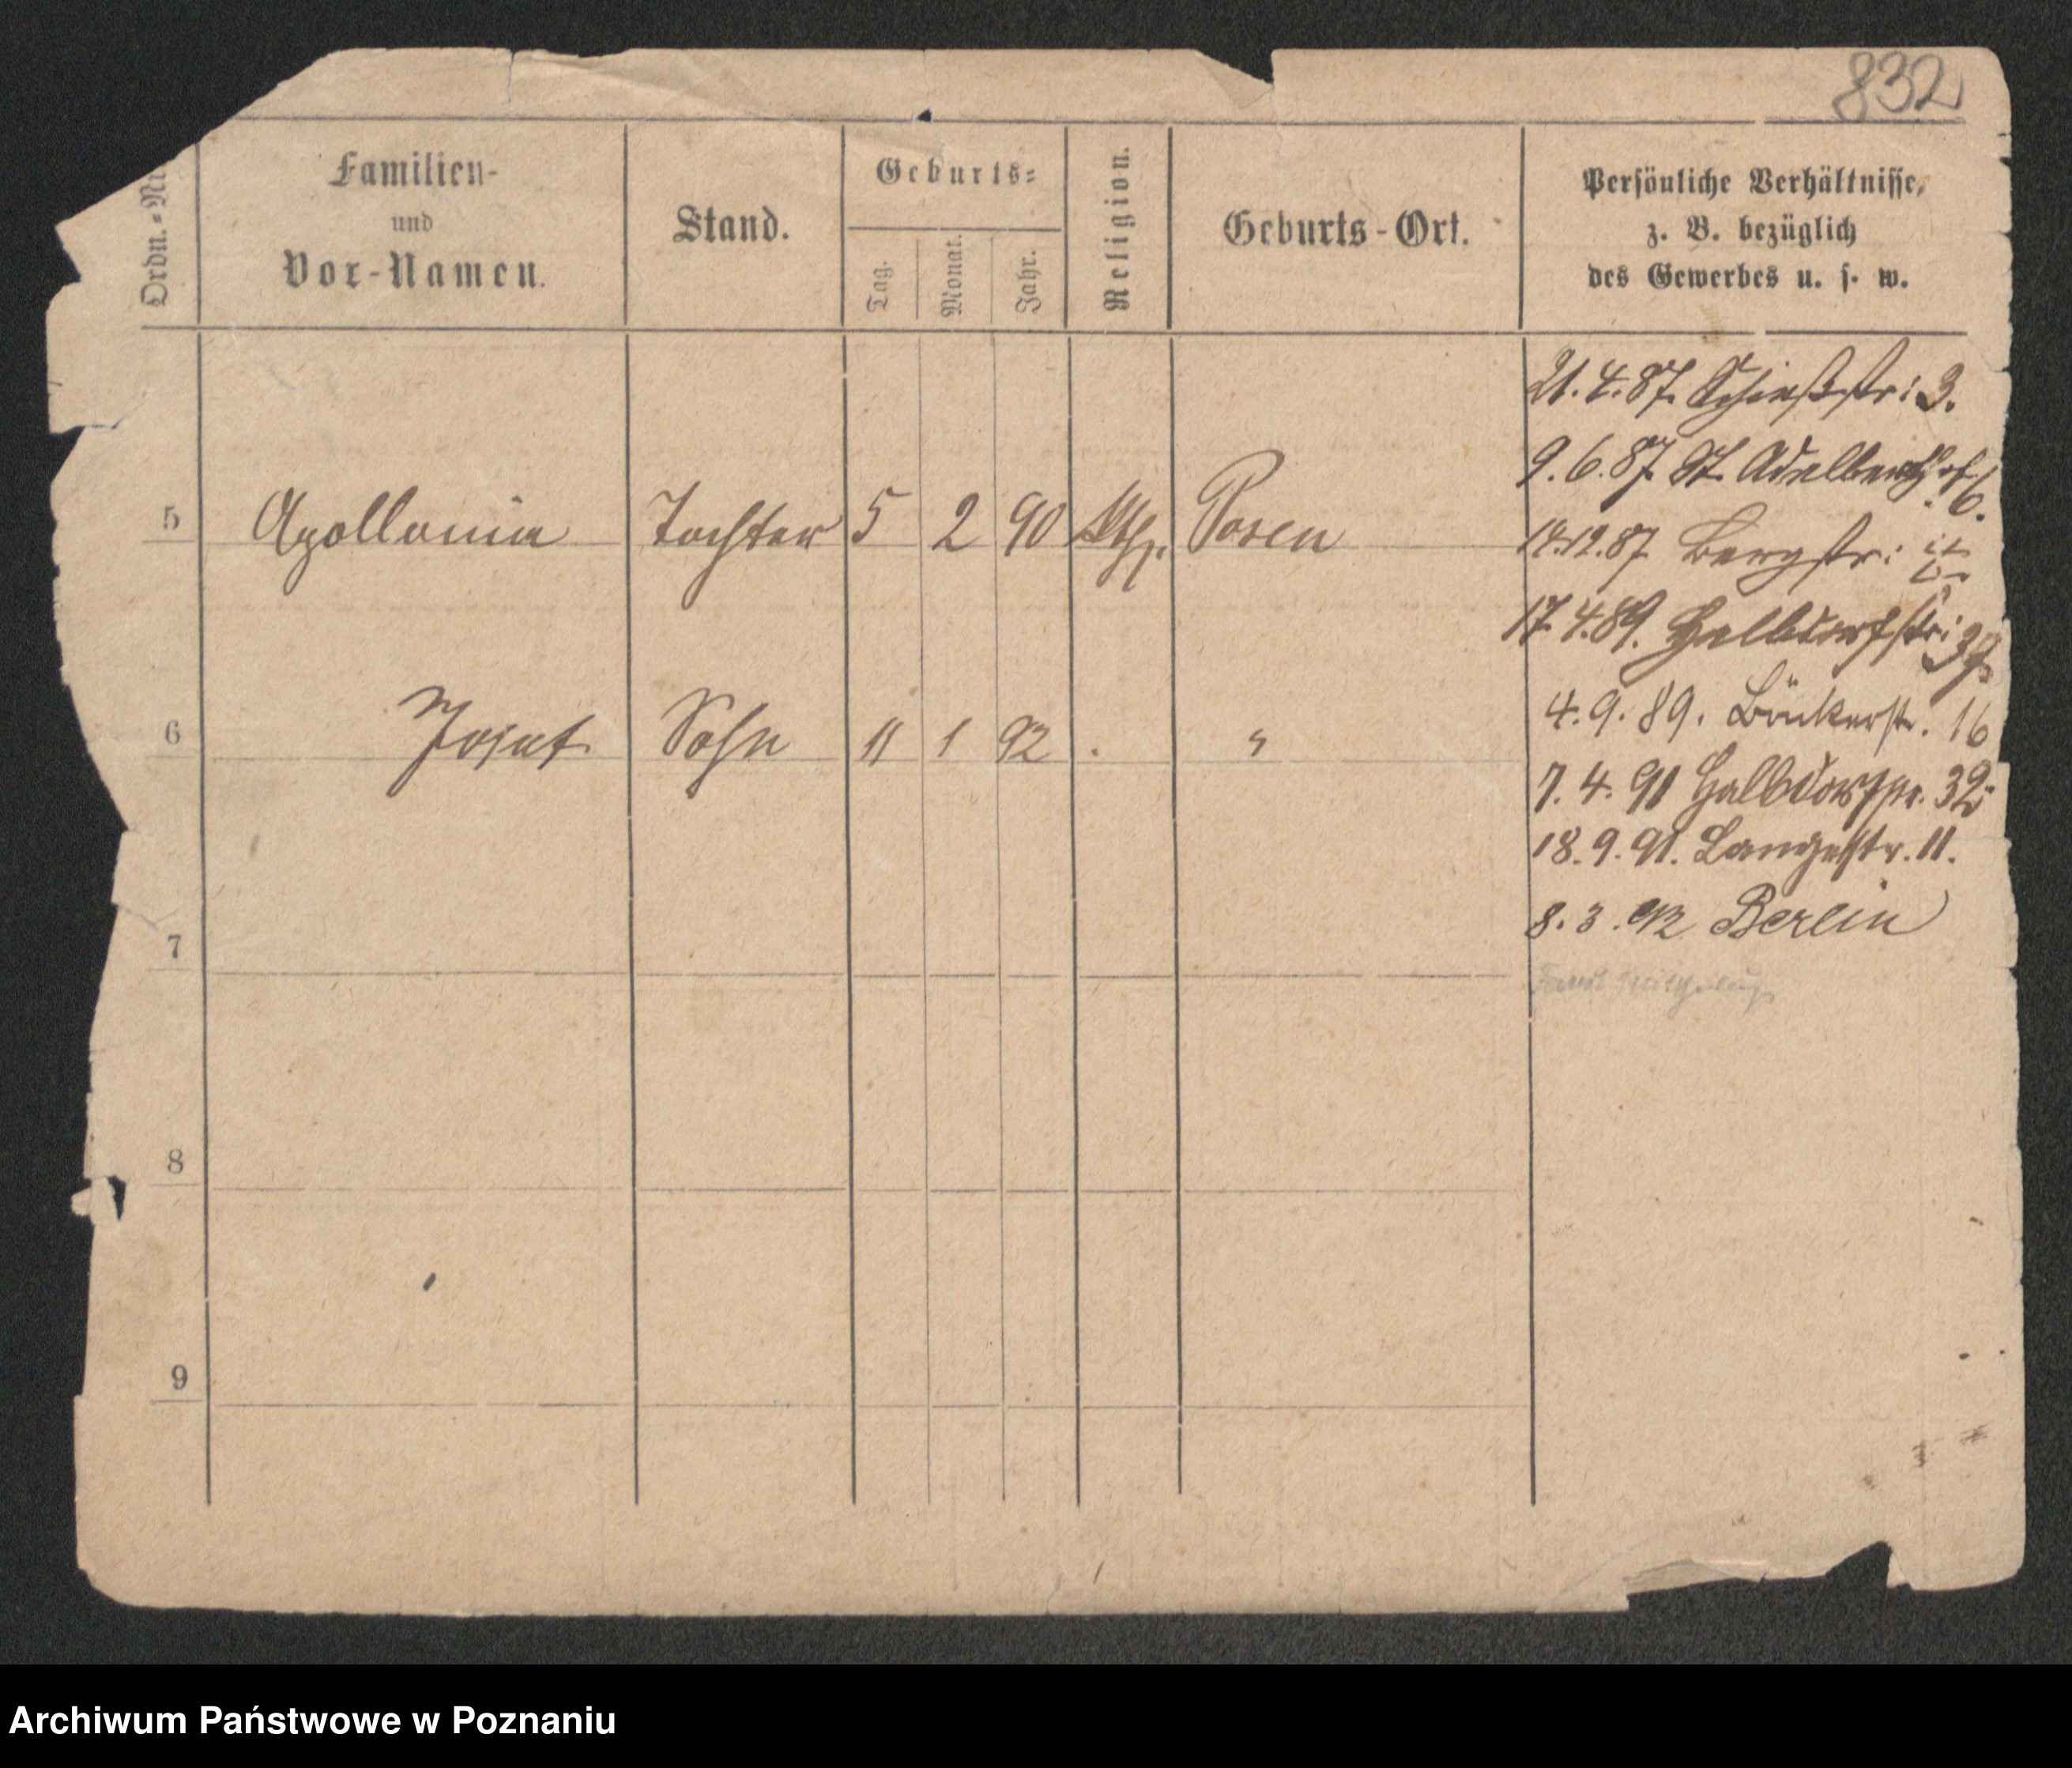 832
Ordn.-Nr
Familien-
und
Vor-Namen.
Stand.
Geburts-
Tag.
Monat.
Jahr.
Religion.
Geburts-Ort.
Persönliche Verhältnisse,
z. B. bezüglich
des Gewerbes u. s. w.
21.4.87. Schießstr: 3.
9.6.87. St. Adalberthof 6.
5 Apollonia Tochter 5 2 90 kth. Posen
14.12.87 Bergstr:
17.4.89. Halbdorfstr: 32
6 Josef Sohn 11 1 92 "
4.9.89. Bäckerstr. 16
7.4.91 Halbdorfstr. 32
18.9.91. Langestr. 11.
8.3.92 Berlin
7
8
9
Archiwum Państwowe w Poznaniu